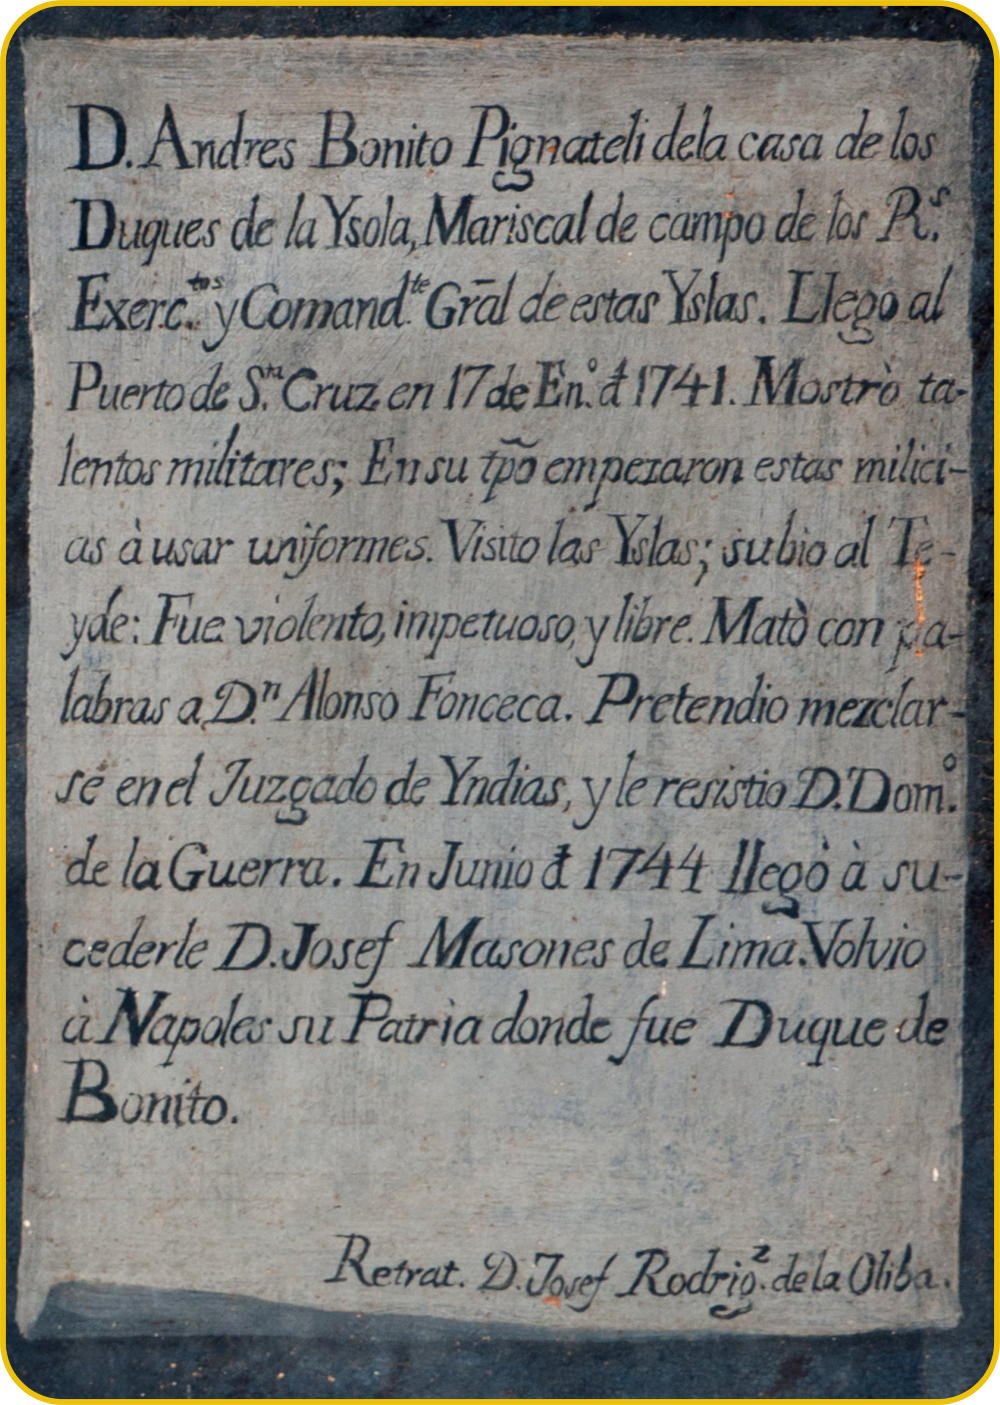 D. Andres Bonito Pignateli dela casa de los
Duques de la Ysola, Mariscal de campo de los R.ˢ
Exerc.ᵗᵒˢ y Comand.ᵗᵉ Gr̃al de estas Yslas. Llego al
Puerto de S.ᵗᵃ Cruz en 17 de En.º đ 1741. Mostrò ta-
lentos militares; En su tp̃o empezaron estas milici-
as à usar uniformes. Visito las Yslas; subio al Te-
yde: Fue violento, impetuoso, y libre. Matò con pa-
labras a D.ⁿ Alonso Fonceca. Pretendio mezclar-
se en el Juzgado de Yndias, y le resistio D. Dom.º
de la Guerra. En Junio đ 1744 llegò à su-
cederle D. Josef Masones de Lima. Volvio
à Napoles su Patria donde fue Duque de
Bonito.
Retrat. D. Josef Rodrig.ᶻ de la Oliba.